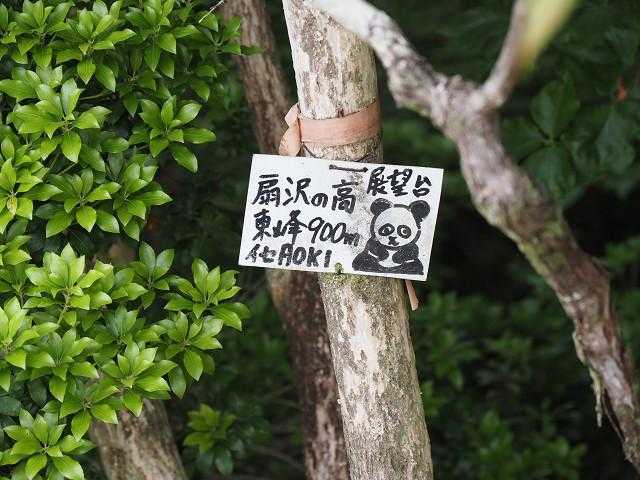 扇沢の高
展望台
東峰900m
イセAOKI